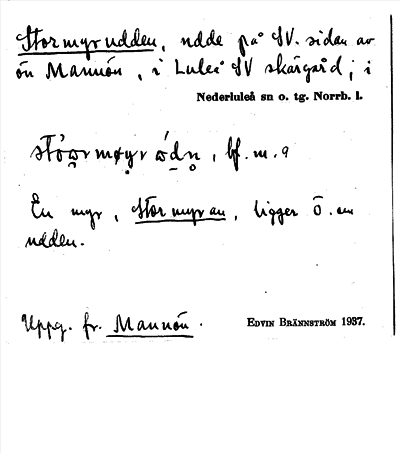 Stormyrudden, udde på SV. sidan av
ön Mannön, i Luleå SV skärgård; i
Nederluleå sn o. tg. Norrb. l.
bf. m. a
En myr, Stormyran, ligger Ö. om
udden.
Uppg. fr. Mannön.
EDVIN BRÄNNSTRÖM 1937.